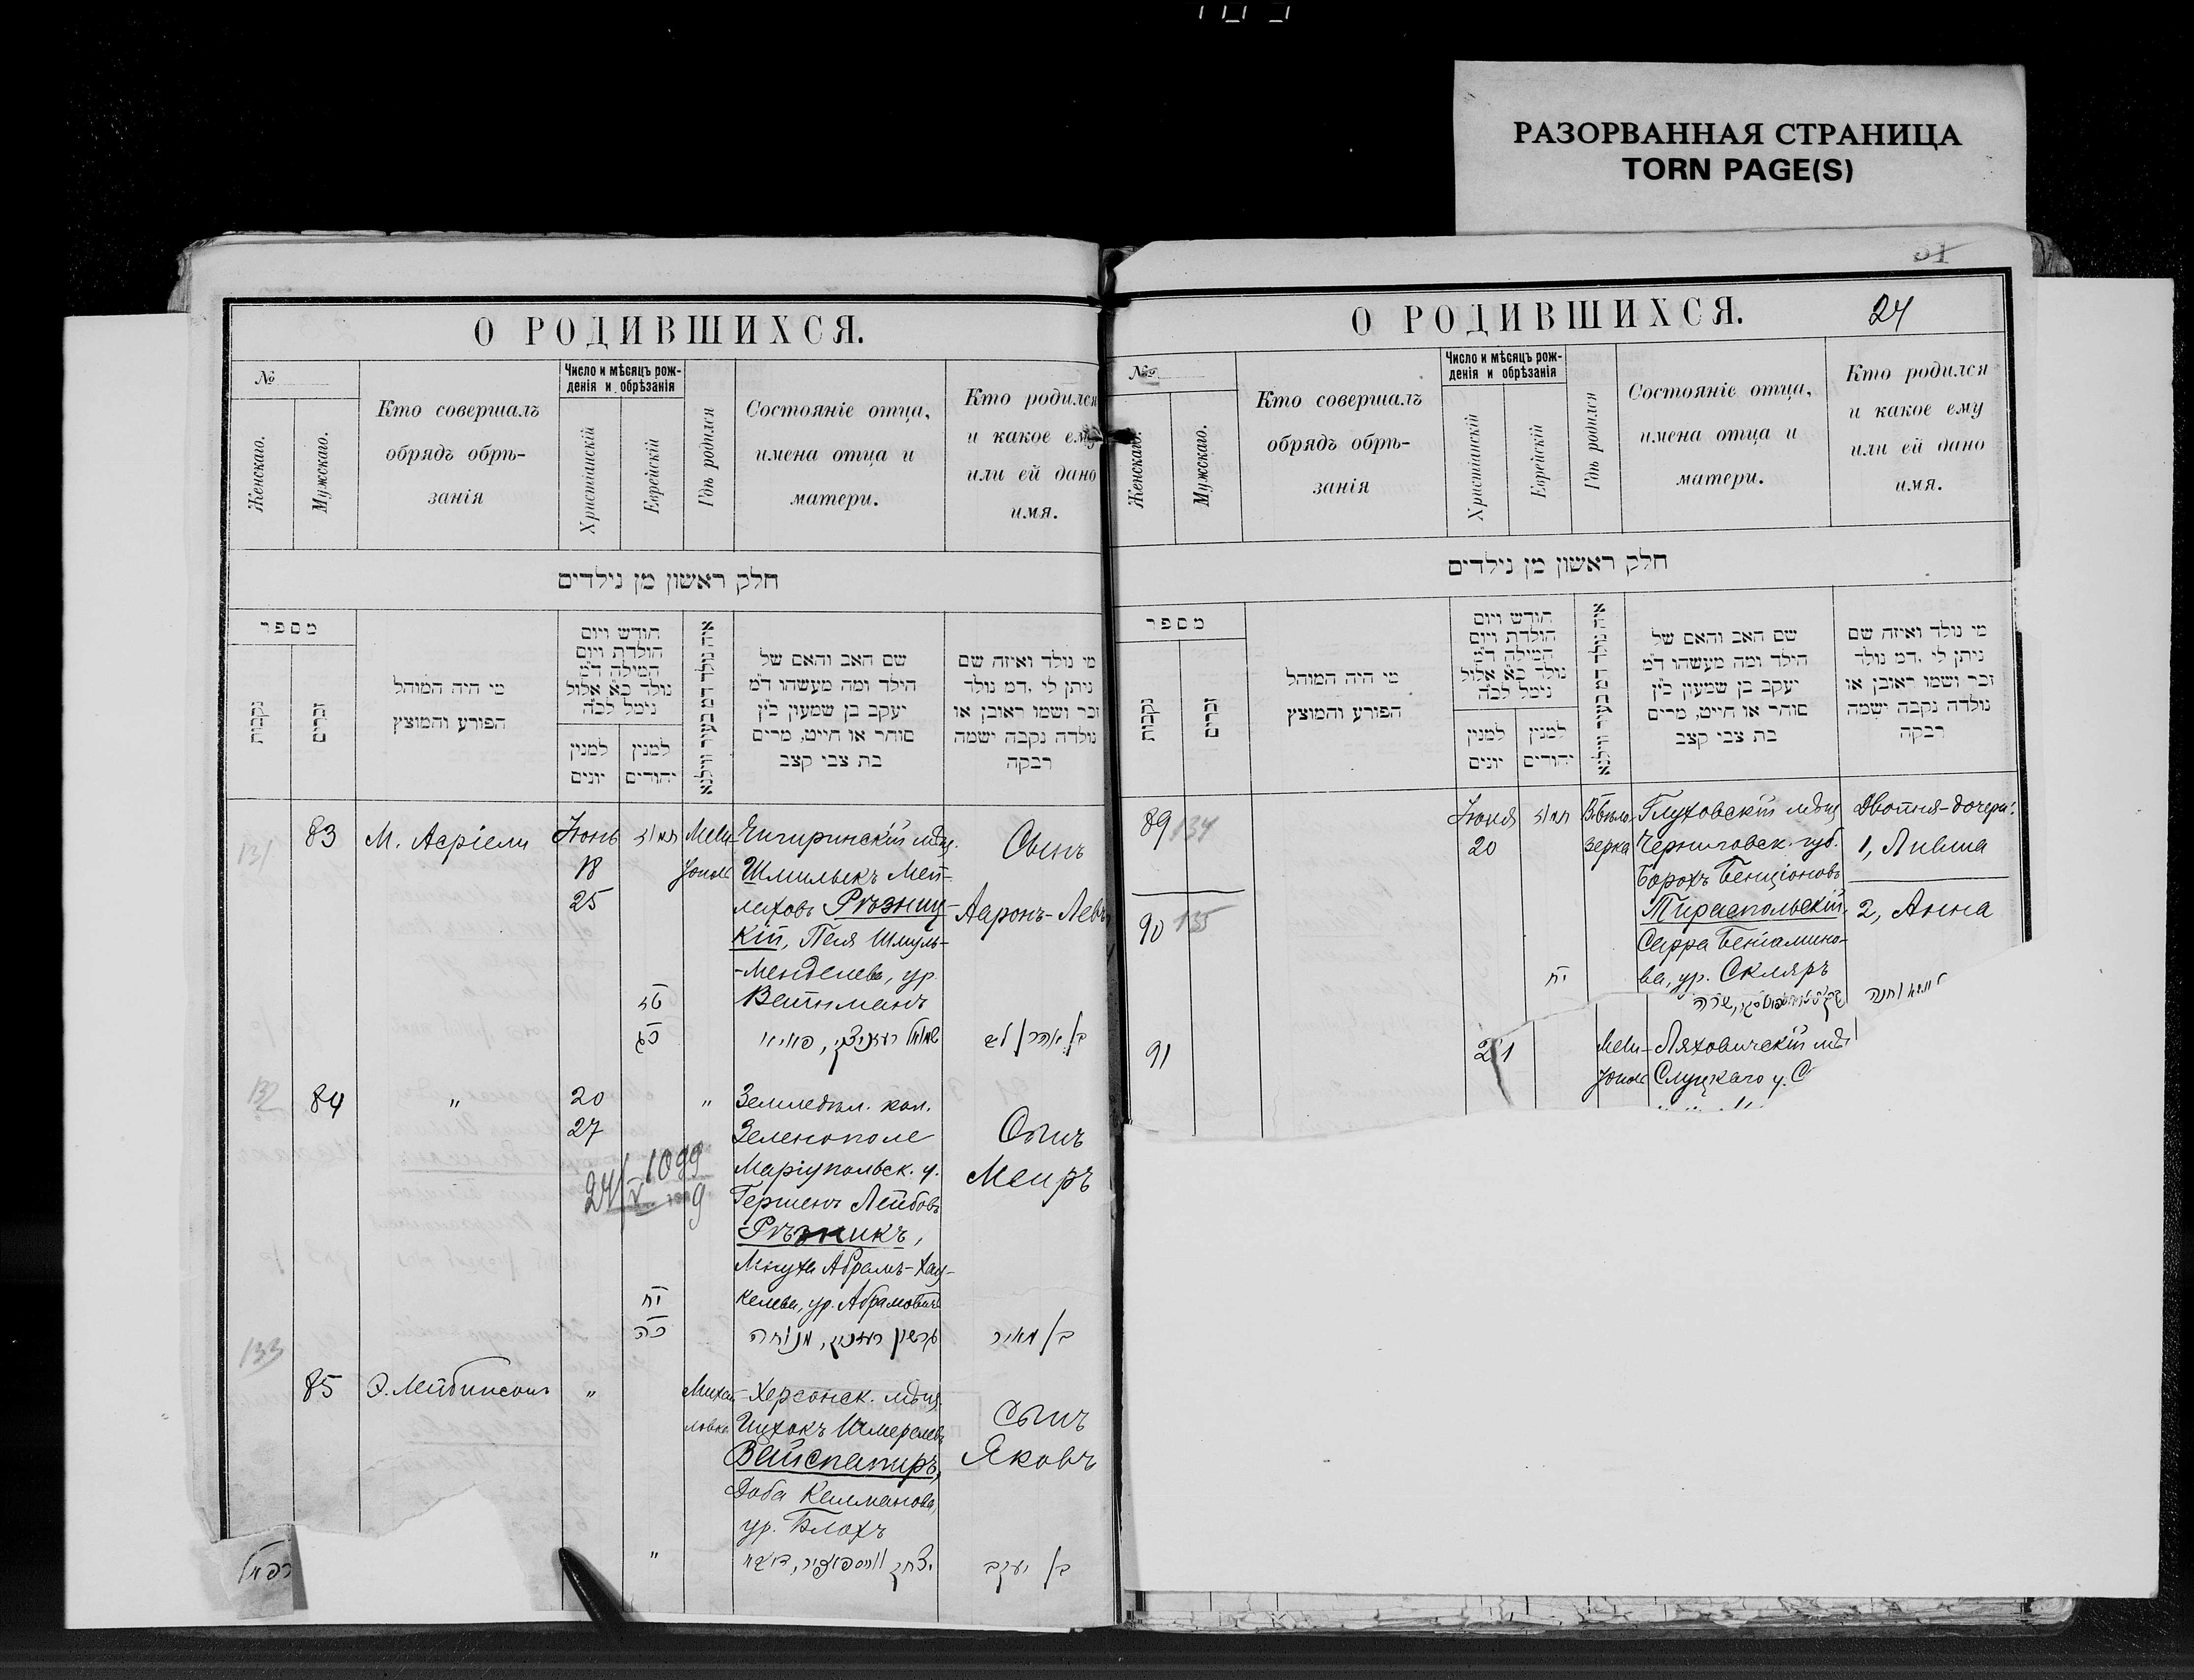 РАЗОРВАННАЯ СТРАНИЦА
TORN PAGE(S)
О РОДИВШИХСЯ.
№
Женскаго.
Мужскаго.
Кто совершалъ
обрядъ обрѣ-
занія
Число и мѣсяцъ рож-
денія и обрѣзанія
Христіанскій
Еврейскій
Гдѣ родился
Состояніе отца,
имена отца и
матери.
Кто родился
и какое ему
или ей дано
имя.
חלק ראשון מן נילדים
מספר
נקבות
זכרים
מי היה המוהל
הפורע והמוצץ
חודש ויום
הולדת ויום
המילה ד"מ
נולד כ"א אלול
נימל לכ"ה
למנין
יונים
למנין
יהודים
איה נולד דמ בעיר ווילנא
שם האב והאם של
הילד ומה מעשהו ד"מ
יעקב בן שמעון כ"ן
סוחר או חייט, מרים
בת צבי קצב
מי נולד ואיזה שם
ניתן לי .דמ נולד
זכר ושמו ראובן או
נולדה נקבה ישמה
רבקה
131
83
М. Асріели
Іюнь
18
25
תמוז
Мели-
тополь
Чигиринскій мѣщ.
Шмилыкъ Мей-
леховъ Рѣзниц-
кій, Пеля Шмуль-
-Менделева, ур.
Вайнманъ
Сынъ
Ааронъ-Левъ
132
84
"
20
27
"
Земледѣл. кол.
Зеленополе
Маріупольск. у.
Гершенъ Лейбовъ
Рѣзникъ,
Мнуха Абрамъ-Хац-
келева, ур. Абрамовичъ
Сынъ
Меиръ
1099
24/V 9
יח
כה
הערשין רעזניק, מנוחה
בן מאיר
133
85
Э. Лейбинсонъ
"
Михай-
ловка
Херсонск. мѣщ.
Ицхокъ Шмерелевъ
Вайспапиръ,
Доба Калманова,
ур. Блохъ
Сынъ
Яковъ
"
בן יעקב
О РОДИВШИХСЯ.
24
31
№
Женскаго.
Мужскаго.
Кто совершалъ
обрядъ обрѣ-
занія
Число и мѣсяцъ рож-
денія и обрѣзанія
Христіанскій
Еврейскій
Гдѣ родился
Состояніе отца,
имена отца и
матери.
Кто родился
и какое ему
или ей дано
имя.
חלק ראשון מן נילדים
מספר
נקבות
זכרים
מי היה המוהל
הפורע והמוצץ
חודש ויום
הולדת ויום
המילה ד"מ
נולד כ"א אלול
נימל לכ"ה
למנין
יונים
למנין
יהודים
איה נולד דמ בעיר ווילנא
שם האב והאם של
הילד ומה מעשהו ד"מ
יעקב בן שמעון כ"ן
סוחר או חייט, מרים
בת צבי קצב
מי נולד ואיזה שם
ניתן לי .דמ נולד
זכר ושמו ראובן או
נולדה נקבה ישמה
רבקה
89
134
90
135
Іюня
20
תמוז
יח
Глуховскій мѣщ
Черниговск. губ.
Борохъ Бенціоновъ
Тираспольскій,
Сарра Беніамино-
ва, ур. Скляръ
Двойня-дочери:
2, Анна
91
21
Мели-
тополь
Ляховичскій мѣ
Слуцкаго у. С